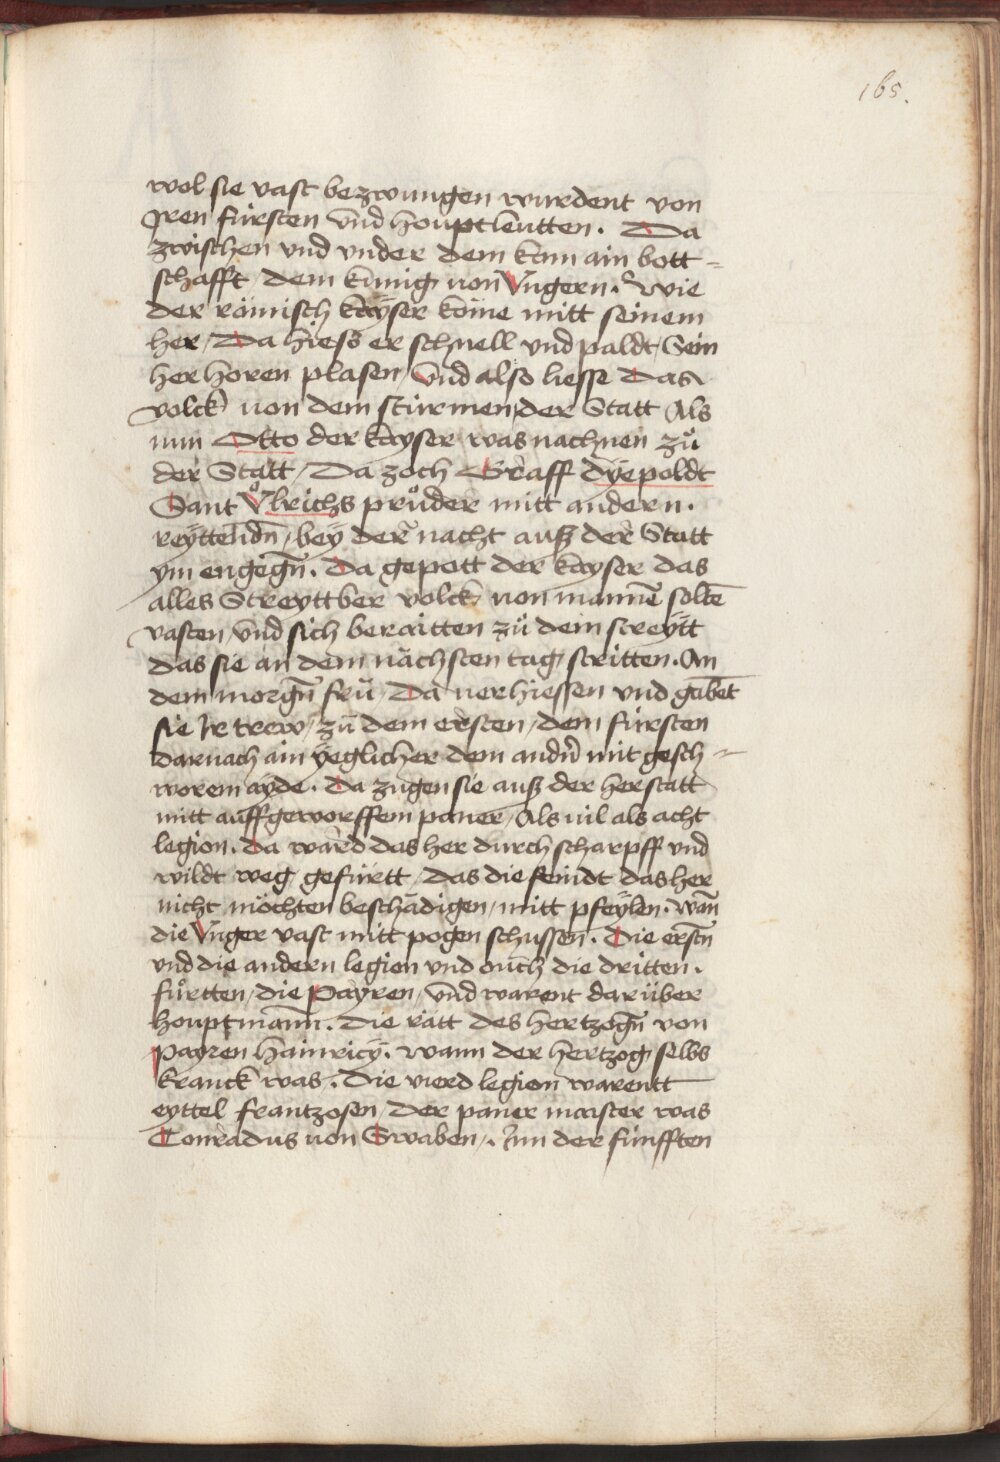 165.
wol sie vast bezwungen wurdent von
Iren fürsten vnd houptleutten. Da
zwischen vnd vnder dem kam ain bott-
schafft dem künig von Vngern. wie
der römisch kayser köme mitt seinem
her / Da hiess er schnell vnd paldt / Sein
her horen plasen / Vnd also liesse Das
volck von dem stürmen der Statt Als
nun Otto der kayser was nachnen zů
der Statt / Da zoch Graff dyepoldt
Sant Vͦlrichs průder mitt andern.
reyttendn̄ / bey der nacht auß der Statt
ym engegn̄. Da gepott der kayser das
alles Streyttber volck von mannē soltē
vasten / vnd sich beraitten zů dem streytt
das sie an dem nächsten tag stritten. An
dem morgn̄ frü / Da verhiessen vnd gabēt
sie Ir trew / zů dem ersten / dem fürsten
darnach ain yeglicher dem andn̄ mit gesch-
worem ayde. Da zugen sie auß der herstatt
mitt auffgeworffem paner / Als vil als acht
legion. Da ward das her durch scharpff vnd
wildt weg gefürtt / das die feindt das her
nicht möchten beschädigen / mitt pfeylen. wañ
die Vnger vast mitt pogen schussen. Die erstn̄
vnd die andern legion vnd ouch die dritten.
fůrtten / die Payren / vnd warent darüber
houptmann. Die rätt des hertzogn̄ von
Payren hainricy. wann der hertzog selbs
kranck was. Die vierd legion warentt
eyttel frantzosen / Der paner maister was
Conradus von Swaben /. Inn der fünfften